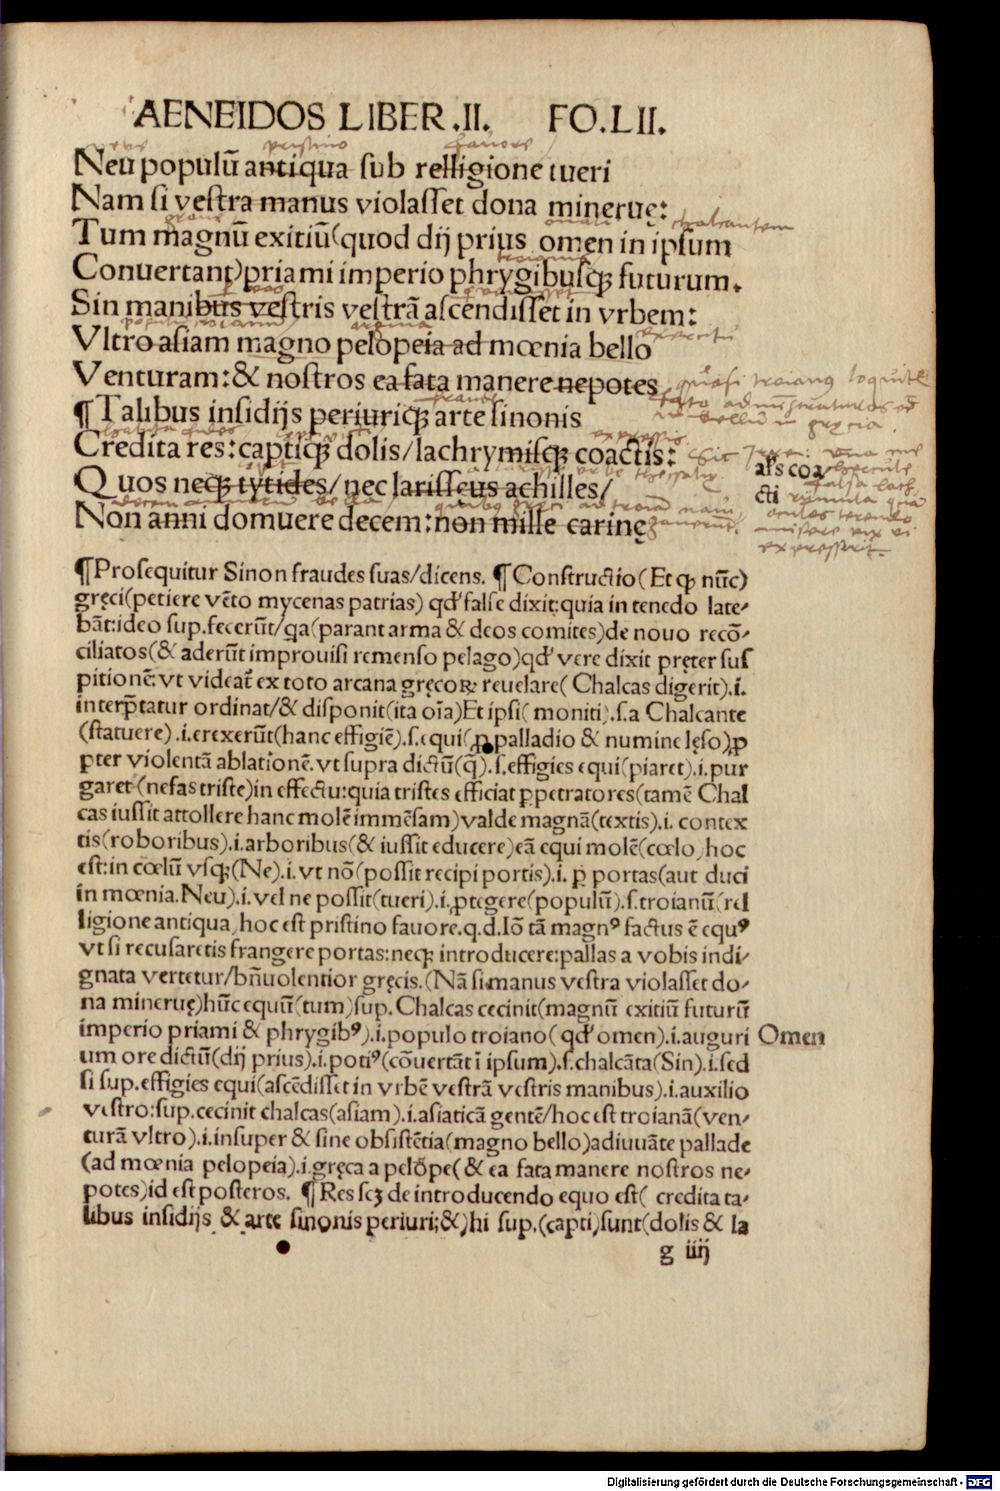 AENEIDOS LIBER .II. FO.LII.
Neu populū antiqua sub relligione tueri
Nam si vestra manus violasset dona mineruę:
Tum magnū exitiū (quod dij prius omen in ipsum
Conuertant) priami imperio phrygibusqꝫ futurum.
Sin manibus vestris vestrā ascendisset in vrbem:
Vltro asiam magno pelopeia ad mœnia bello
Venturam: & nostros ea fata manere nepotes
¶ Talibus insidijs periuriqꝫ arte sinonis
Credita res: captiqꝫ dolis/ lachrymisqꝫ coactis:
als coa/
Quos neqꝫ tytides/ nec larisseus achilles/
cti
Non anni domuere decem: non mille carinę
¶ Prosequitur Sinon fraudes suas/ dicens. ¶ Constructio (Et qꝫ nūc)
gręci (petiere vēto mycenas patrias) qd' false dixit: quia in tenedo late-
bāt: ideo sup. fecerūt/ qa (parant arma & deos comites) de nouo recō-
ciliatos (& aderūt improuisi remenso pelago) qd' vere dixit pręter sus
pitionē: vt videat̃ ex toto arcana gręcoꝝ reuelare (Chalcas digerit) .i.
interp̄tatur ordinat/ & disponit (ita oīa) Et ipsi (moniti) .s. a Chalcante
(statuere) .i. erexerūt (hanc effigiē) .s. equi (ꝓ palladio & numine lęso) ꝓ
pter violentā ablationē. vt supra dictū (q̄) .s. effigies equi (piaret) .i. pur
garet (nefas triste) in effectu: quia tristes efficiat ꝑpetratores (tamē Chal
cas iussit attollere hanc molē immēsam) valde magnā (textis) .i. contex
tis (roboribus) .i. arboribus (& iussit educere) eā equi molē (cœlo) hoc
est: in cœlū vsqꝫ (Ne) .i. vt nō (possit recipi portis) .i. ꝑ portas (aut duci
in mœnia. Neu) .i. vel ne possit (tueri) .i. ꝓtegere (populū) .s. troianū (rel
ligione antiqua) hoc est pristino fauore. q.d. Iō tā magnꝰ factus ē equꝰ
vt si recusaretis frangere portas: neqꝫ introducere: pallas a vobis indi-
gnata vertetur/ bn̄uolentior gręcis. (Nā si manus vestra violasset do-
na mineruę) hūc equū (tum) sup. Chalcas cecinit (magnū exitiū futurū
imperio priami & phrygibꝰ) .i. populo troiano (qd' omen) .i. auguri
Omen
um ore dictū (dij prius) .i. potiꝰ (cōuertāt ī ipsum) .s. chalcāta (Sin) .i. sed
si sup. effigies equi (ascēdisset in vrbē vestrā vestris manibus) .i. auxilio
vestro: sup. cecinit chalcas (asiam) .i. asiaticā gentē/ hoc est troianā (ven-
turā vltro) .i. insuper & sine obsistētia (magno bello) adiuuāte pallade
(ad mœnia pelopeia) .i. gręca a pelōpe (& ea fata manere nostros ne-
potes) id est posteros. ¶ Res scꝫ de introducendo equo est (credita ta-
libus insidijs & arte sinonis periuri; &) hi sup. (capti) sunt (dolis & la
g iiij
Digitalisierung gefördert durch die Deutsche Forschungsgemeinschaft - DFG